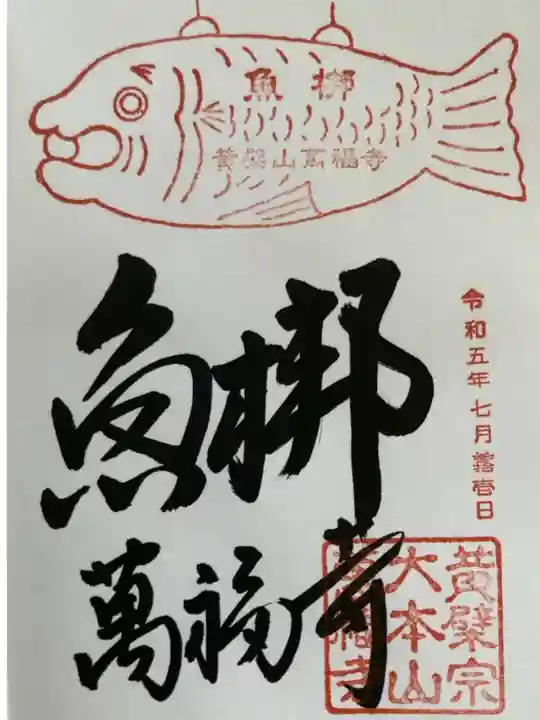 魚梆
黄檗山萬福寺
魚梆
萬福寺
令和五年七月
壱日
黄檗宗
大本山
萬福寺